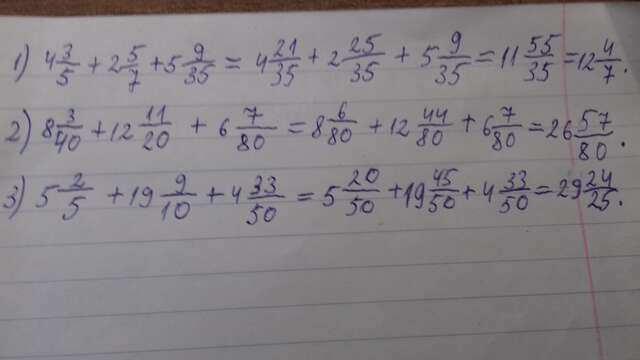 1) 4 3/5 + 2 5/7 + 5 9/35 = 4 21/35 + 2 25/35 + 5 9/35 = 11 55/35 = 12 4/7.
2) 8 3/40 + 12 11/20 + 6 7/80 = 8 6/80 + 12 44/80 + 6 7/80 = 26 57/80.
3) 5 2/5 + 19 9/10 + 4 33/50 = 5 20/50 + 19 45/50 + 4 33/50 = 29 24/25.